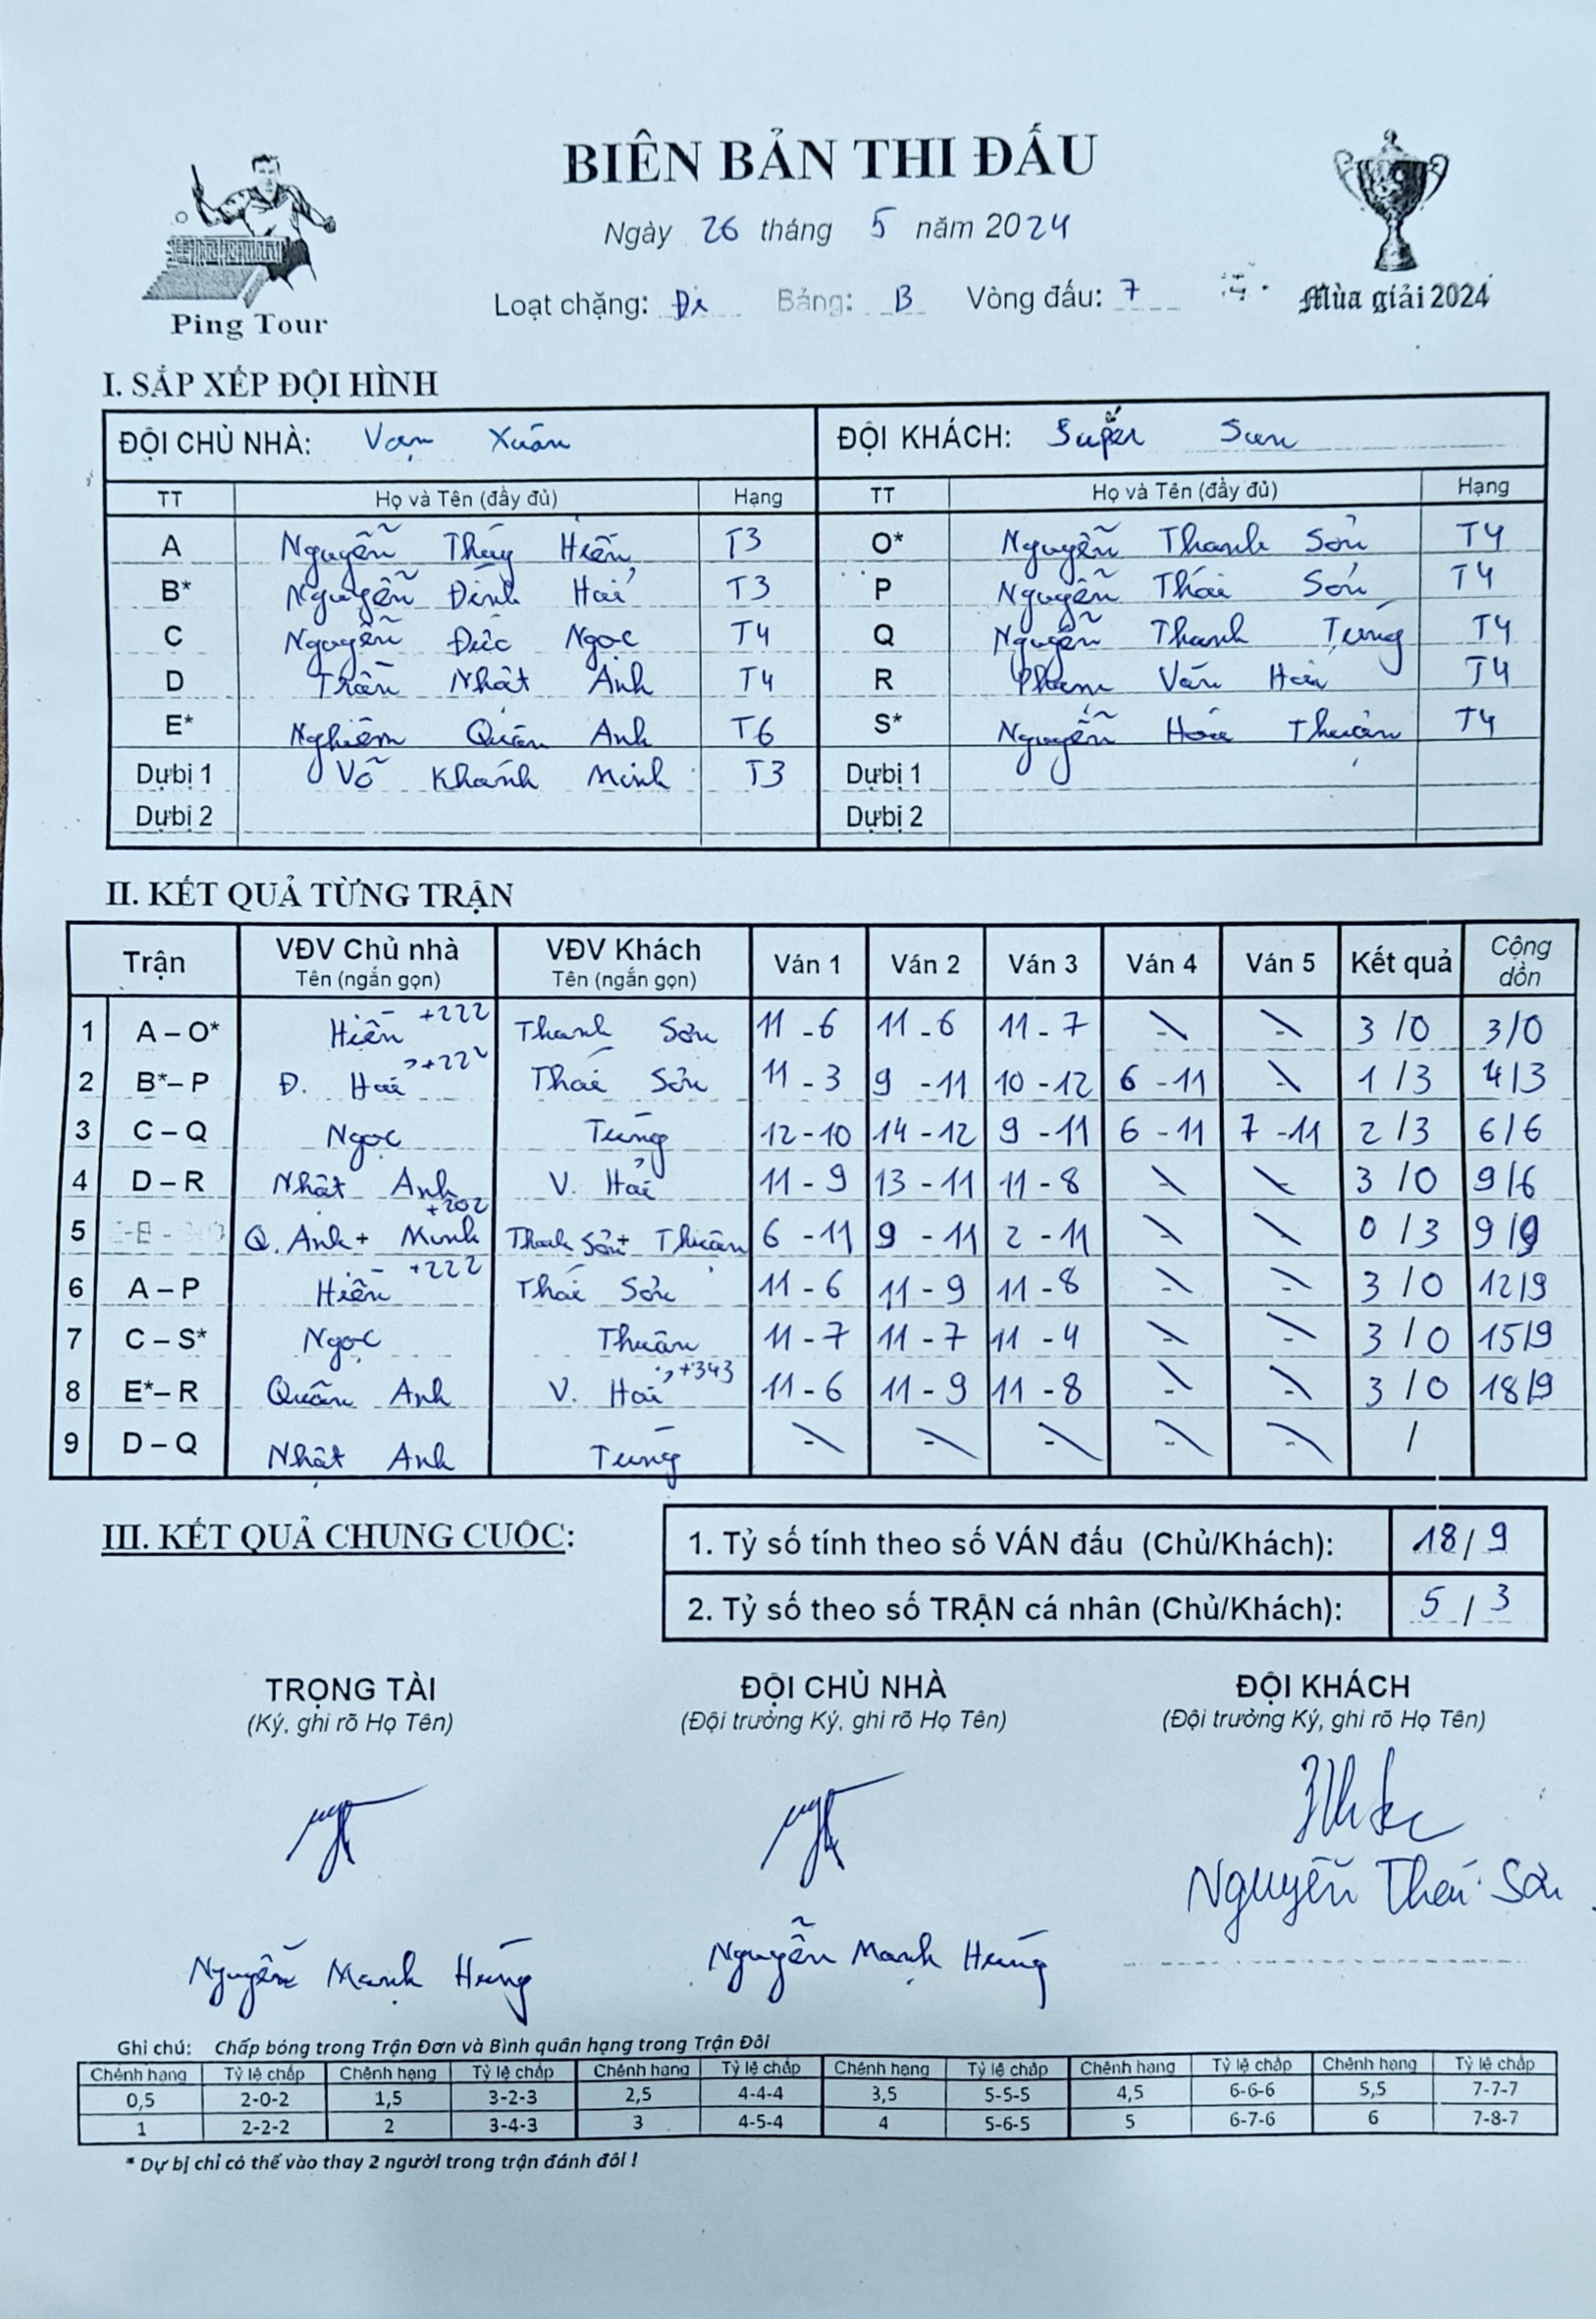 BIÊN BẢN THI ĐẤU
Ngày 26 tháng 5 năm 2024
Loạt chặng: Đi Bảng: B Vòng đấu: 7
Ping Tour
Mùa giải 2024
I. SẮP XẾP ĐỘI HÌNH
ĐỘI CHỦ NHÀ: Vạn Xuân ĐỘI KHÁCH: Super Sun
TT Họ và Tên (đầy đủ) Hạng TT Họ và Tên (đầy đủ) Hạng
A Nguyễn Thúy Hiền T3 O* Nguyễn Thanh Sơn T4
B* Nguyễn Đình Hải T3 P Nguyễn Thái Sơn T4
C Nguyễn Đức Ngọc T4 Q Nguyễn Thanh Tùng T4
D Trần Nhật Anh T4 R Phạm Văn Hải T4
E* Nghiêm Quân Anh T6 S* Nguyễn Hòa Thuận T4
Dự bị 1 Võ Khánh Minh T3 Dự bị 1
Dự bị 2 Dự bị 2
II. KẾT QUẢ TỪNG TRẬN
Trận VĐV Chủ nhà VĐV Khách Ván 1 Ván 2 Ván 3 Ván 4 Ván 5 Kết quả Cộng dồn
Tên (ngắn gọn) Tên (ngắn gọn)
1 A – O* Hiền +222 Thanh Sơn 11 - 6 11 - 6 11 - 7 - - 3 / 0 3/0
2 B* – P Đ. Hải +222 Thái Sơn 11 - 3 9 - 11 10 - 12 6 - 11 - 1 / 3 4/3
3 C – Q Ngọc Tùng 12 - 10 14 - 12 9 - 11 6 - 11 7 - 11 2 / 3 6/6
4 D – R Nhật Anh V. Hải 11 - 9 13 - 11 11 - 8 - - 3 / 0 9/6
5 Q. Anh + Minh +202 Thanh Sơn + Thuận 6 - 11 9 - 11 2 - 11 - - 0 / 3 9/9
6 A – P Hiền +222 Thái Sơn 11 - 6 11 - 9 11 - 8 - - 3 / 0 12/9
7 C – S* Ngọc Thuận 11 - 7 11 - 7 11 - 4 - - 3 / 0 15/9
8 E* – R Quân Anh V. Hải +343 11 - 6 11 - 9 11 - 8 - - 3 / 0 18/9
9 D – Q Nhật Anh Tùng - - - - - /
III. KẾT QUẢ CHUNG CUỘC:
1. Tỷ số tính theo số VÁN đấu (Chủ/Khách): 18 / 9
2. Tỷ số theo số TRẬN cá nhân (Chủ/Khách): 5 / 3
TRỌNG TÀI ĐỘI CHỦ NHÀ ĐỘI KHÁCH
(Ký, ghi rõ Họ Tên) (Đội trưởng Ký, ghi rõ Họ Tên) (Đội trưởng Ký, ghi rõ Họ Tên)
Nguyễn Mạnh Hùng Nguyễn Mạnh Hùng Nguyễn Thái Sơn
Ghi chú: Chấp bóng trong Trận Đơn và Bình quân hạng trong Trận Đôi
Chênh hạng Tỷ lệ chấp Chênh hạng Tỷ lệ chấp Chênh hạng Tỷ lệ chấp Chênh hạng Tỷ lệ chấp Chênh hạng Tỷ lệ chấp Chênh hạng Tỷ lệ chấp
0,5 2-0-2 1,5 3-2-3 2,5 4-4-4 3,5 5-5-5 4,5 6-6-6 5,5 7-7-7
1 2-2-2 2 3-4-3 3 4-5-4 4 5-6-5 5 6-7-6 6 7-8-7
* Dự bị chỉ có thể vào thay 2 người trong trận đánh đôi !